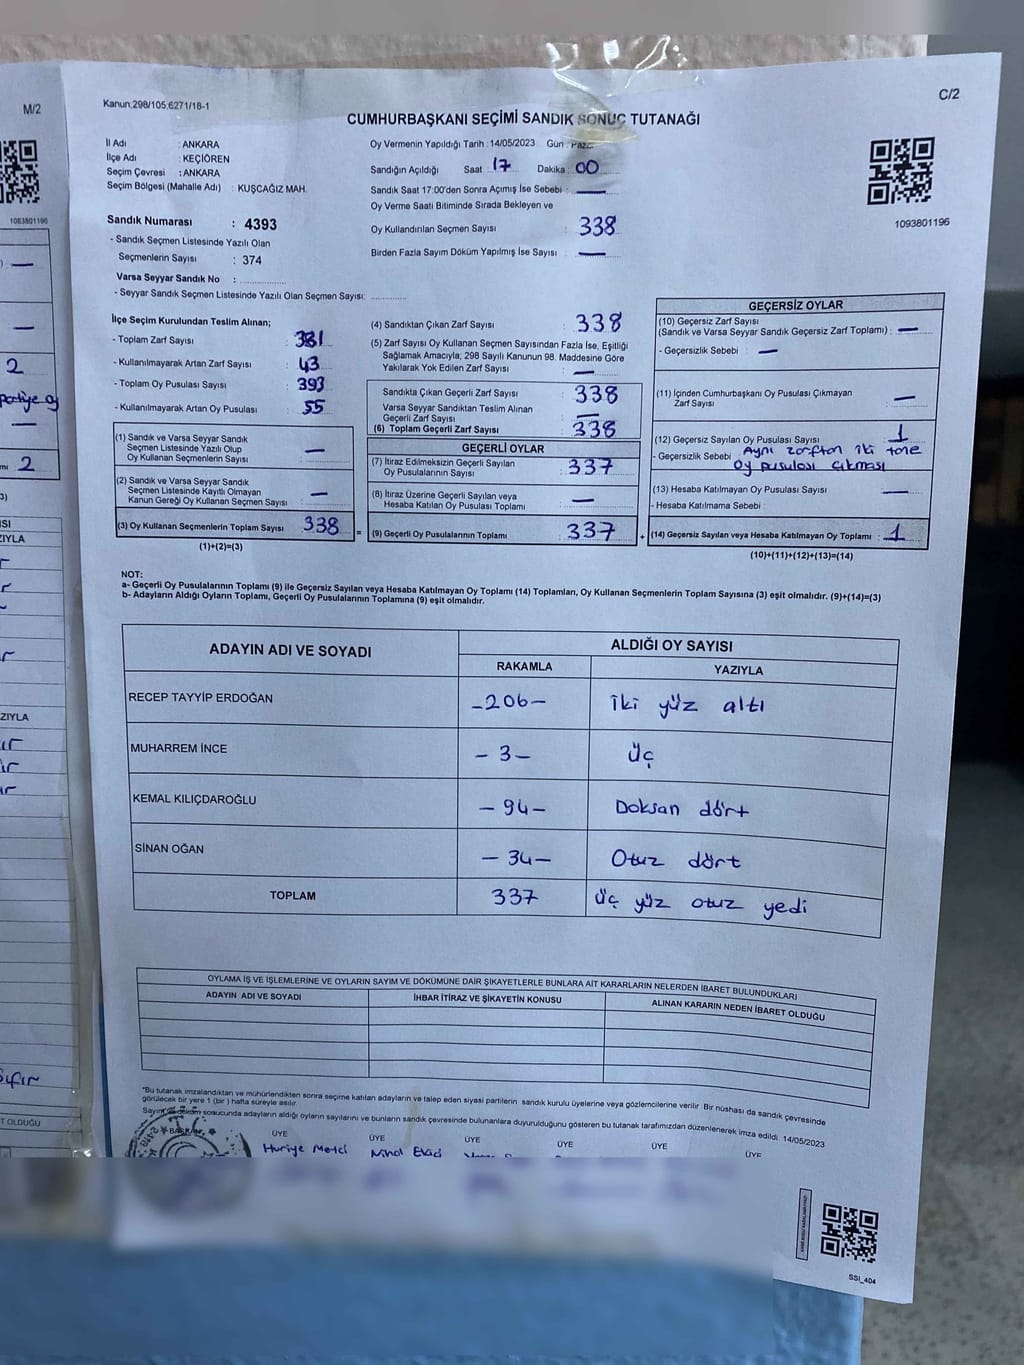 M/2
Kanun.298/105,6271/18-1
C/2
CUMHURBAŞKANI SEÇİMİ SANDIK SONUÇ TUTANAĞI
İl Adı : ANKARA
İlçe Adı : KEÇİÖREN
Seçim Çevresi : ANKARA
Seçim Bölgesi (Mahalle Adı) : KUŞCAĞIZ MAH.
Oy Vermenin Yapıldığı Tarih : 14/05/2023 Gün : Pazar
Sandığın Açıldığı Saat : 17 Dakika : 00
Sandık Saat 17:00'den Sonra Açımış İse Sebebi : —
Oy Verme Saati Bitiminde Sırada Bekleyen ve
Oy Kullandırılan Seçmen Sayısı 338
Birden Fazla Sayım Döküm Yapılmış İse Sayısı : —
1083801196
1093801196
Sandık Numarası : 4393
- Sandık Seçmen Listesinde Yazılı Olan
Seçmenlerin Sayısı : 374
Varsa Seyyar Sandık No :
- Seyyar Sandık Seçmen Listesinde Yazılı Olan Seçmen Sayısı:
İlçe Seçim Kurulundan Teslim Alınan;
- Toplam Zarf Sayısı : 381
- Kullanılmayarak Artan Zarf Sayısı : 43
- Toplam Oy Pusulası Sayısı : 393
- Kullanılmayarak Artan Oy Pusulası : 55
(1) Sandık ve Varsa Seyyar Sandık
Seçmen Listesinde Yazılı Olup
Oy Kullanan Seçmenlerin Sayısı —
(2) Sandık ve Varsa Seyyar Sandık
Seçmen Listesinde Kayıtlı Olmayan
Kanun Gereği Oy Kullanan Seçmen Sayısı —
(3) Oy Kullanan Seçmenlerin Toplam Sayısı 338
(1)+(2)=(3)
(4) Sandıktan Çıkan Zarf Sayısı : 338
(5) Zarf Sayısı Oy Kullanan Seçmen Sayısından Fazla İse, Eşitliği
Sağlamak Amacıyla; 298 Sayılı Kanunun 98. Maddesine Göre
Yakılarak Yok Edilen Zarf Sayısı —
Sandıkta Çıkan Geçerli Zarf Sayısı 338
Varsa Seyyar Sandıktan Teslim Alınan
Geçerli Zarf Sayısı —
(6) Toplam Geçerli Zarf Sayısı 338
GEÇERLİ OYLAR
(7) İtiraz Edilmeksizin Geçerli Sayılan
Oy Pusulalarının Sayısı 337
(8) İtiraz Üzerine Geçerli Sayılan veya
Hesaba Katılan Oy Pusulası Toplamı —
= (9) Geçerli Oy Pusulalarının Toplamı 337
GEÇERSİZ OYLAR
(10) Geçersiz Zarf Sayısı
(Sandık ve Varsa Seyyar Sandık Geçersiz Zarf Toplamı) : —
- Geçersizlik Sebebi : —
(11) İçinden Cumhurbaşkanı Oy Pusulası Çıkmayan
Zarf Sayısı —
(12) Geçersiz Sayılan Oy Pusulası Sayısı : 1
- Geçersizlik Sebebi : Aynı zarftan iki tane
oy pusulası çıkması
(13) Hesaba Katılmayan Oy Pusulası Sayısı : —
- Hesaba Katılmama Sebebi :
+ (14) Geçersiz Sayılan veya Hesaba Katılmayan Oy Toplamı : 1
(10)+(11)+(12)+(13)=(14)
NOT:
a- Geçerli Oy Pusulalarının Toplamı (9) ile Geçersiz Sayılan veya Hesaba Katılmayan Oy Toplamı (14) Toplamları, Oy Kullanan Seçmenlerin Toplam Sayısına (3) eşit olmalıdır. (9)+(14)=(3)
b- Adayların Aldığı Oyların Toplamı, Geçerli Oy Pusulalarının Toplamına (9) eşit olmalıdır.
ADAYIN ADI VE SOYADI ALDIĞI OY SAYISI
RAKAMLA YAZIYLA
RECEP TAYYİP ERDOĞAN -206- İki yüz altı
MUHARREM İNCE -3- Üç
KEMAL KILIÇDAROĞLU -94- Doksan dört
SİNAN OĞAN -34- Otuz dört
TOPLAM 337 Üç yüz otuz yedi
OYLAMA İŞ VE İŞLEMLERİNE VE OYLARIN SAYIM VE DÖKÜMÜNE DAİR ŞİKAYETLERLE BUNLARA AİT KARARLARIN NELERDEN İBARET BULUNDUKLARI
ADAYIN ADI VE SOYADI İHBAR İTİRAZ VE ŞİKAYETİN KONUSU ALINAN KARARIN NEDEN İBARET OLDUĞU
*Bu tutanak imzalandıktan ve mühürlendikten sonra seçime katılan adayların ve talep eden siyasi partilerin sandık kurulu üyelerine veya gözlemcilerine verilir. Bir nüshası da sandık çevresinde
görülecek bir yere 1 (bir) hafta süreyle asılır.
Sayım döküm sonucunda adayların aldığı oyların sayılarını ve bunların sandık çevresinde bulunanlara duyurulduğunu gösteren bu tutanak tarafımızdan düzenlenerek imza edildi. 14/05/2023
BAŞKAN ÜYE ÜYE ÜYE ÜYE ÜYE ÜYE
Huriye
SSI_404
2
2
YAZIYLA
Sıfır
T OLDUĞU